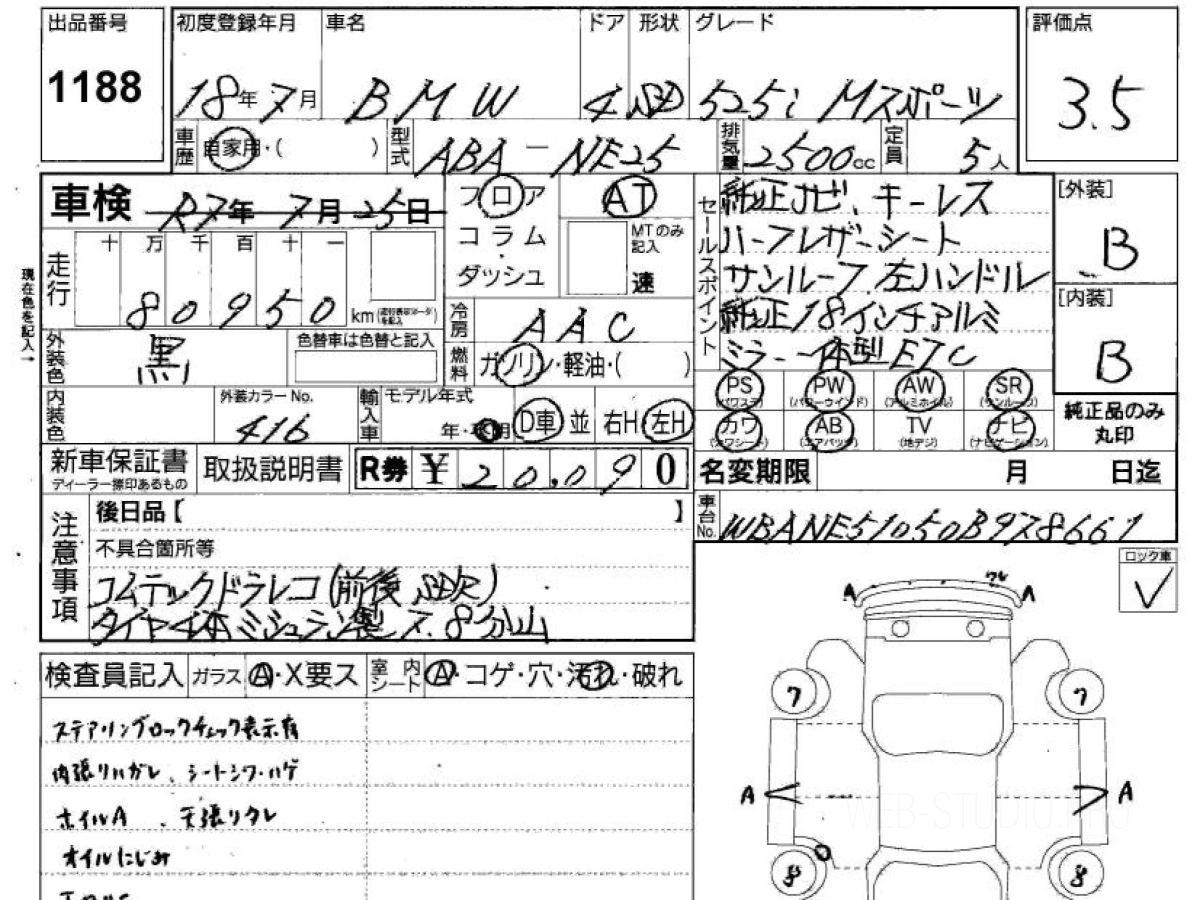 出品番号 初度登録年月 車名 ドア 形状 グレード 評価点
1188 18年7月 BMW 4 SD 525i Mスポーツ 3.5
車歴 自家用・( ) 型式 ABA-NE25 排気量 2500cc 定員 5人
車検 R7年7月25日 フロア AT セールスポイント 純正ナビ、キーレス [外装]
走行 十 万 千 百 十 一 コラム MTのみ記入 ハーフレザーシート B
現在色を記入→ ダッシュ 速 サンルーフ 左ハンドル
80950 km 冷房 AAC 純正18インチアルミ [内装]
外装色 黒 色替車は色替と記入 燃料 ガソリン・軽油・( ) ミラー一体型ETC B
内装色 外装カラーNo. 416 輸入車 モデル年式 年・ 月 D車 並 右H 左H
PS (パワステ) PW (パワーウインド) AW (アルミホイル) SR (サンルーフ) 純正品のみ丸印
カワ (カワシート) AB (エアバック) TV (地デジ) ナビ (ナビゲーション)
新車保証書 ディーラー捺印あるもの 取扱説明書 R券 ¥20,090 名変期限 月 日迄
注意事項 後日品【 】 車台No. WBANE51050B978661
不具合箇所等 ロック車 ✓
コムテックドラレコ(前後 SDR)
タイヤ4本ミシュラン製 ス.8分山
検査員記入 ガラス A・X要ス 室内シート A・コゲ・穴・汚れ・破れ
ステアリングロックチェック表示有
内張りハガレ、シートシワ・ハゲ
ホイルA 、天張りタレ
オイルにじみ
A A
7 7
A A
8 8
WEB-STUDIO.PRO